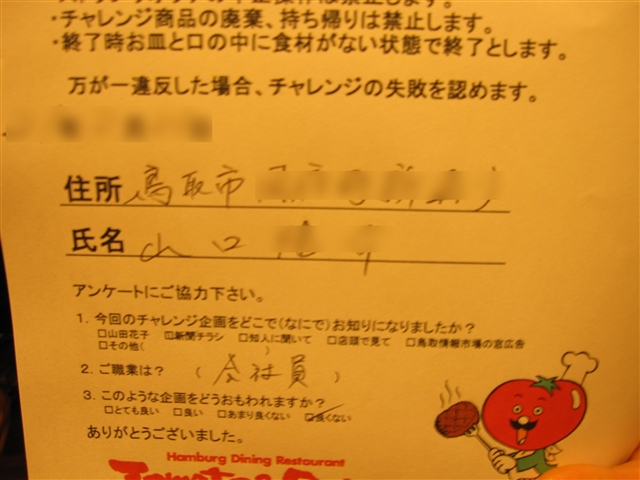 ・チャレンジ商品の廃棄、持ち帰りは禁止します。
・終了時お皿と口の中に食材がない状態で終了とします。
万が一違反した場合、チャレンジの失敗を認めます。
住所 鳥取市
氏名 山口
アンケートにご協力下さい。
1. 今回のチャレンジ企画をどこで(なにで)お知りになりましたか?
□山田花子 ☑新聞チラシ □知人に聞いて □店頭で見て □鳥取情報市場の窓広告
□その他( )
2. ご職業は? (会社員)
3. このような企画をどうおもわれますか?
□とても良い □良い □あまり良くない ☑良くない
ありがとうございました。
Hamburg Dining Restaurant